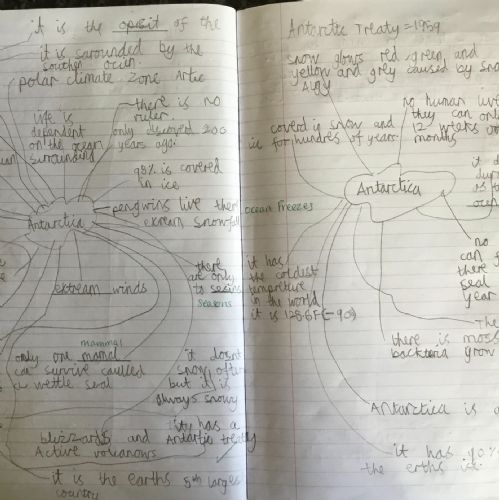 it is the oposit of the
it is sarounded by the
southan ocun.
polar climate zone Artic
there is no
ruler.
life is
dependent
on the ocean
surrounding
only discoverd 200
years ago.
98% is covered
in ice
pengwins live ther
extream snowfall
Antarctica
extream winds
there
are only
to sesins
seasons
mammal
only one mamal
can survive caulled
a wettle seal
it doesnt
snow often
but it is
always snowy
blizzards and
Active volcanows
it has a
Antartic treaty
it is the earths 5th larges
country
Antarctic Treaty = 1959
snow glows red, green, and
yellow and grey caused by sno
Algy
no human liv
they can onl
12 weeks or
months
coverd in snow and
ice for hundres of years.
Antarctica
ocean freezes
it has
the coldest
tempriture
in the world
it is 128.6F(-90)
it d
dur
as
ocea
no
can f
there
seal
year
The
there is moss
backteria grow
Antarctica is a
it has 90%
the erths ice.